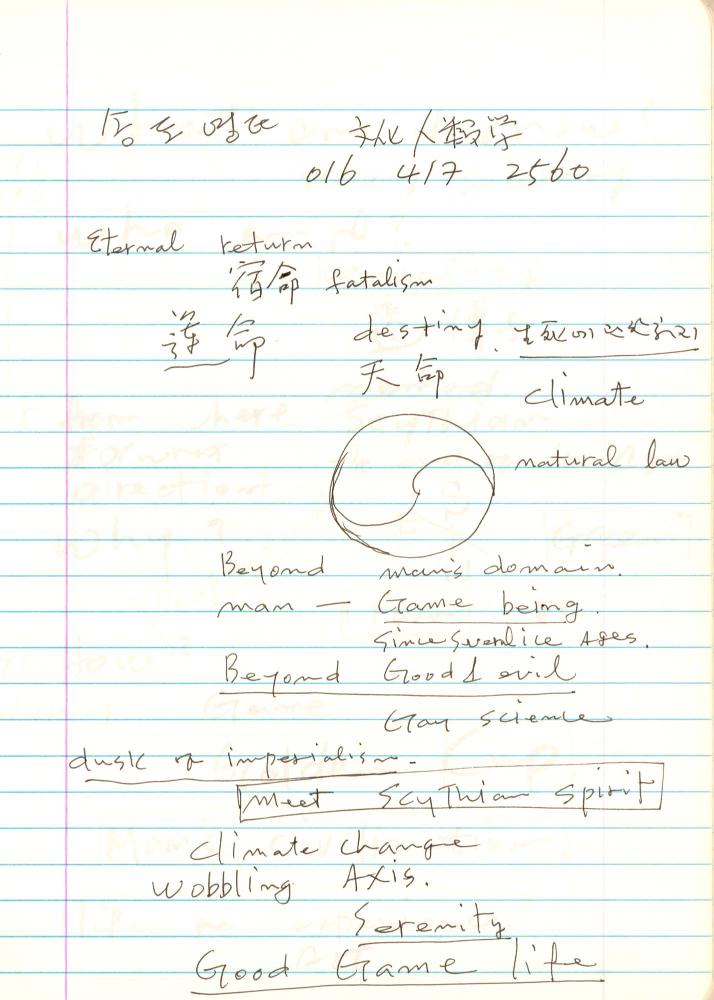 文化人類学
016 417 2560
Eternal return
宿命 fatalism
運命 destiny.
天命
climate
natural law
Beyond man's domain.
man — Game being.
Since Ice Ages.
Beyond Good & evil
Gay science
dusk of imperialism.
Meet Scythian Spirit
climate change
Wobbling Axis.
Serenity
Good Game life